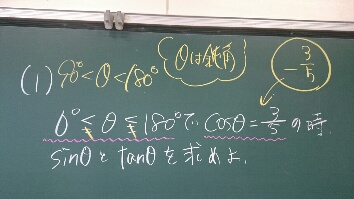 (1) 90°<θ<180° θは鈍角 -3/5
0°≦θ≦180°で、cosθ=3/5の時、
sinθとtanθを求めよ。